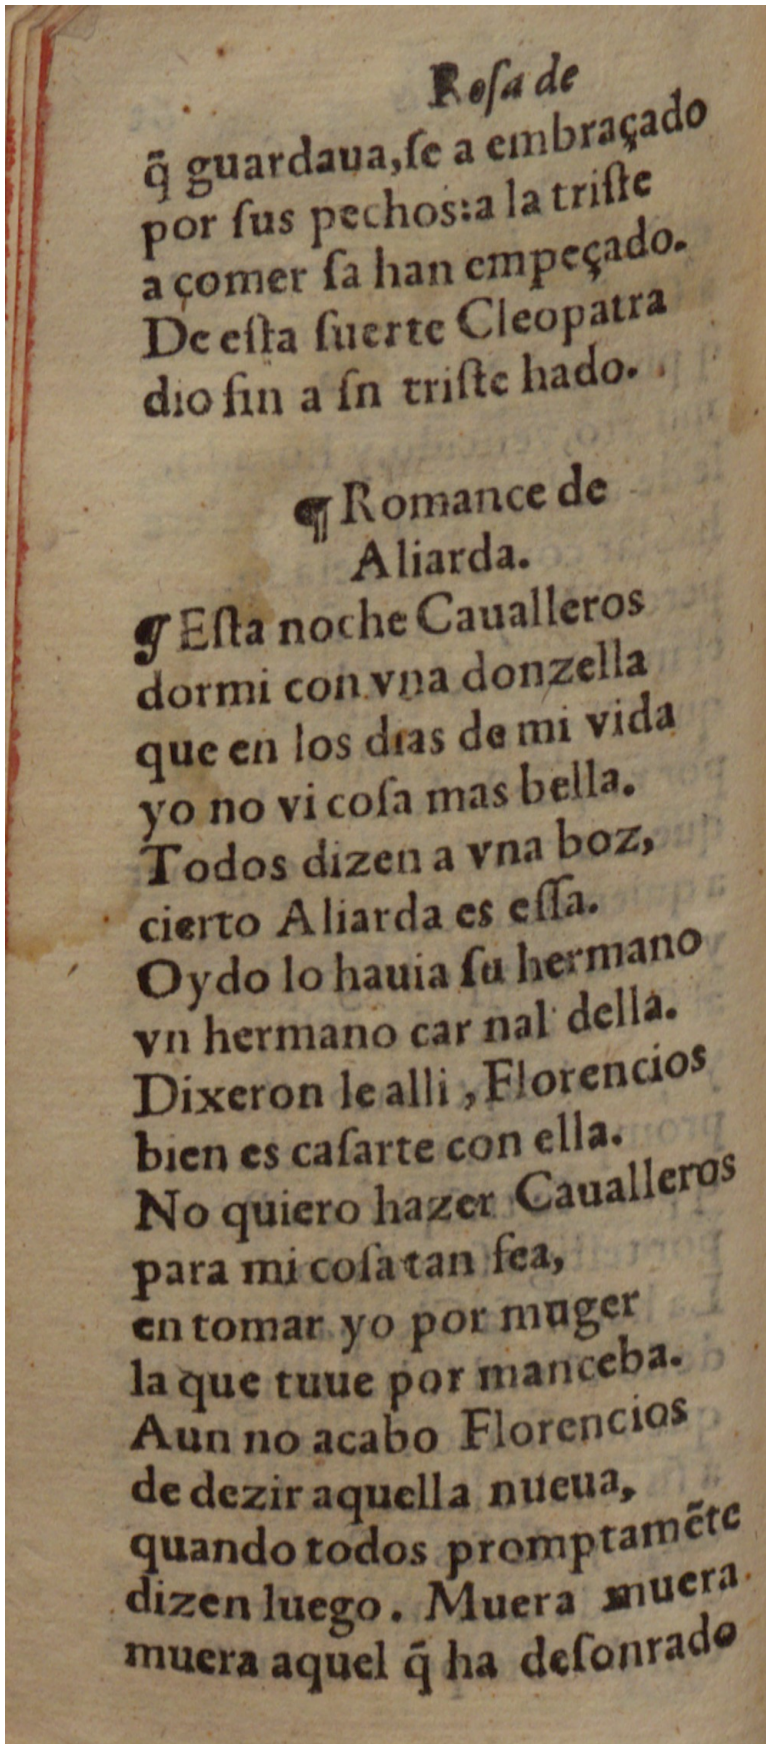 Roſa de
q̃ guardaua,ſe a embraçado
por ſus pechos:a la triſte
a çomer ſa han empeçado.
De eſta ſuerte Cleopatra
dio fin a ſn triſte hado.
¶ Romance de
Aliarda.
¶ Eſta noche Caualleros
dormi con vna donzella
que en los dias de mi vida
yo no vi coſa mas bella.
Todos dizen a vna boz,
cierto Aliarda es eſſa.
Oydo lo hauia ſu hermano
vn hermano car nal della.
Dixeron le alli , Florencios
bien es caſarte con ella.
No quiero hazer Caualleros
para mi coſa tan fea,
en tomar yo por muger
la que tuue por manceba.
Aun no acabo Florencios
de dezir aquella nueua,
quando todos promptamẽte
dizen luego. Muera muera
muera aquel q̃ ha deſonrado